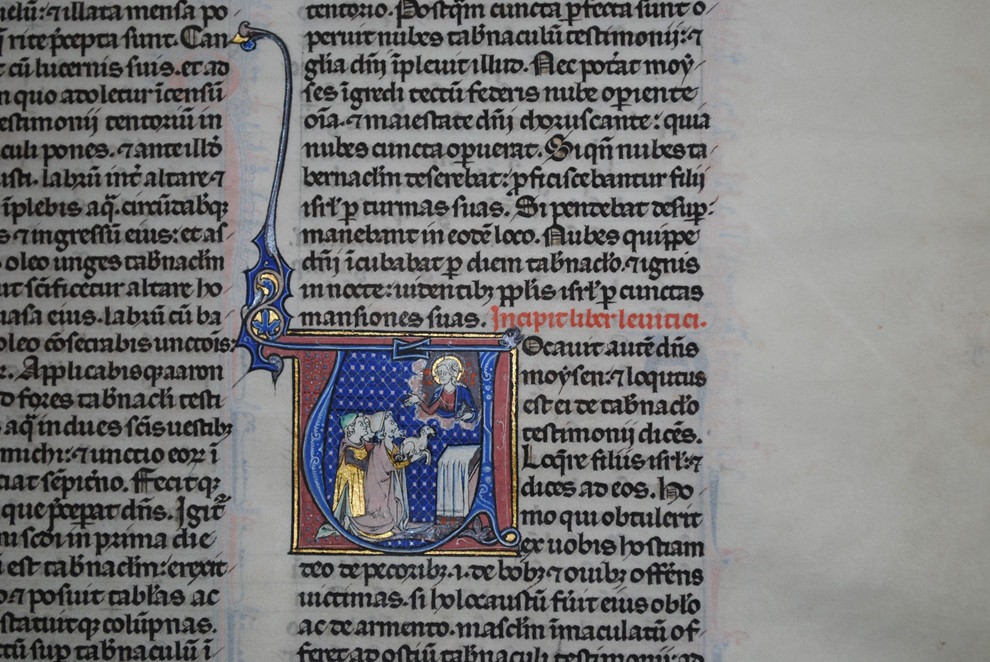 elū:⁊illata mensa po
rite p̄cepta sunt. Can
t cū lucernis suis. et ad
n quo adoletur īcensū
estimonij tentoriū in
culi pones. ⁊ ante illō
usti. labrū int̄ altare ⁊
īplebis aq̄. circūdabq̨
s ⁊ ingressū eius: et as
oleo unges tab̄nacl̄m
ut sc̄ificetur altare ho
uasa eius. labrū cū ba
oleo cōsecrabis unctois
r. Applicabisq̨ aaron
d fores tab̄nacl̄i testi
aq̄ indues sc̄is uestibꝫ
michi: ⁊ unctio eoꝝ ī
ciat sēpit̄no. Fecitq̨
que p̄cep̄at dn̄s. Igit̄
in prima die
i est tab̄nacl̄m: erexit
⁊ posuit tabl̄as ac
statuitq̨ colūpnas.
ctū sup̄ tab̄naculū ī
tentorio. Postq̄m cuncta p̄fecta sunt o
peruit nubes tab̄naculū testimonij: ⁊
gl̄ia dn̄i īpleuit illud. Nec pot̄at moy
ses īgredi tectū federis nube operiente
oīa. ⁊ maiestate dn̄i choruscante: quia
nubes cuncta op̄uerat. Siqn̄ nubes ta
bernacl̄m deserebat: p̄ficiscebantur filij
isrl̄ p̄ turmas suas. Si pendebat desup̄:
manebant in eodē loco. Nubes quippe
dn̄i īcubabat p̄ diem tab̄nacl̄o. ⁊ ignis
in nocte: uidentibꝫ ppl̄is isrl̄ p̄ cunctas
mansiones suas. Incipit liber leuitici.
Vocauit autē dn̄s
moysen: ⁊ loqutus
est ei de tab̄nacl̄o
testimonij dicēs.
Loq̄re filiis isrl̄: ⁊
dices ad eos. Ho
mo qui obtulerit
ex uobis hostiam
deo de pecoribꝫ .i. de bobꝫ ⁊ ouibꝫ offēns
uictimas. si holocaustū fūit eius obl̄o
ac de armento. mascl̄m īmaculatū of
feret ad ostiū tab̄naculi testimonij: ad